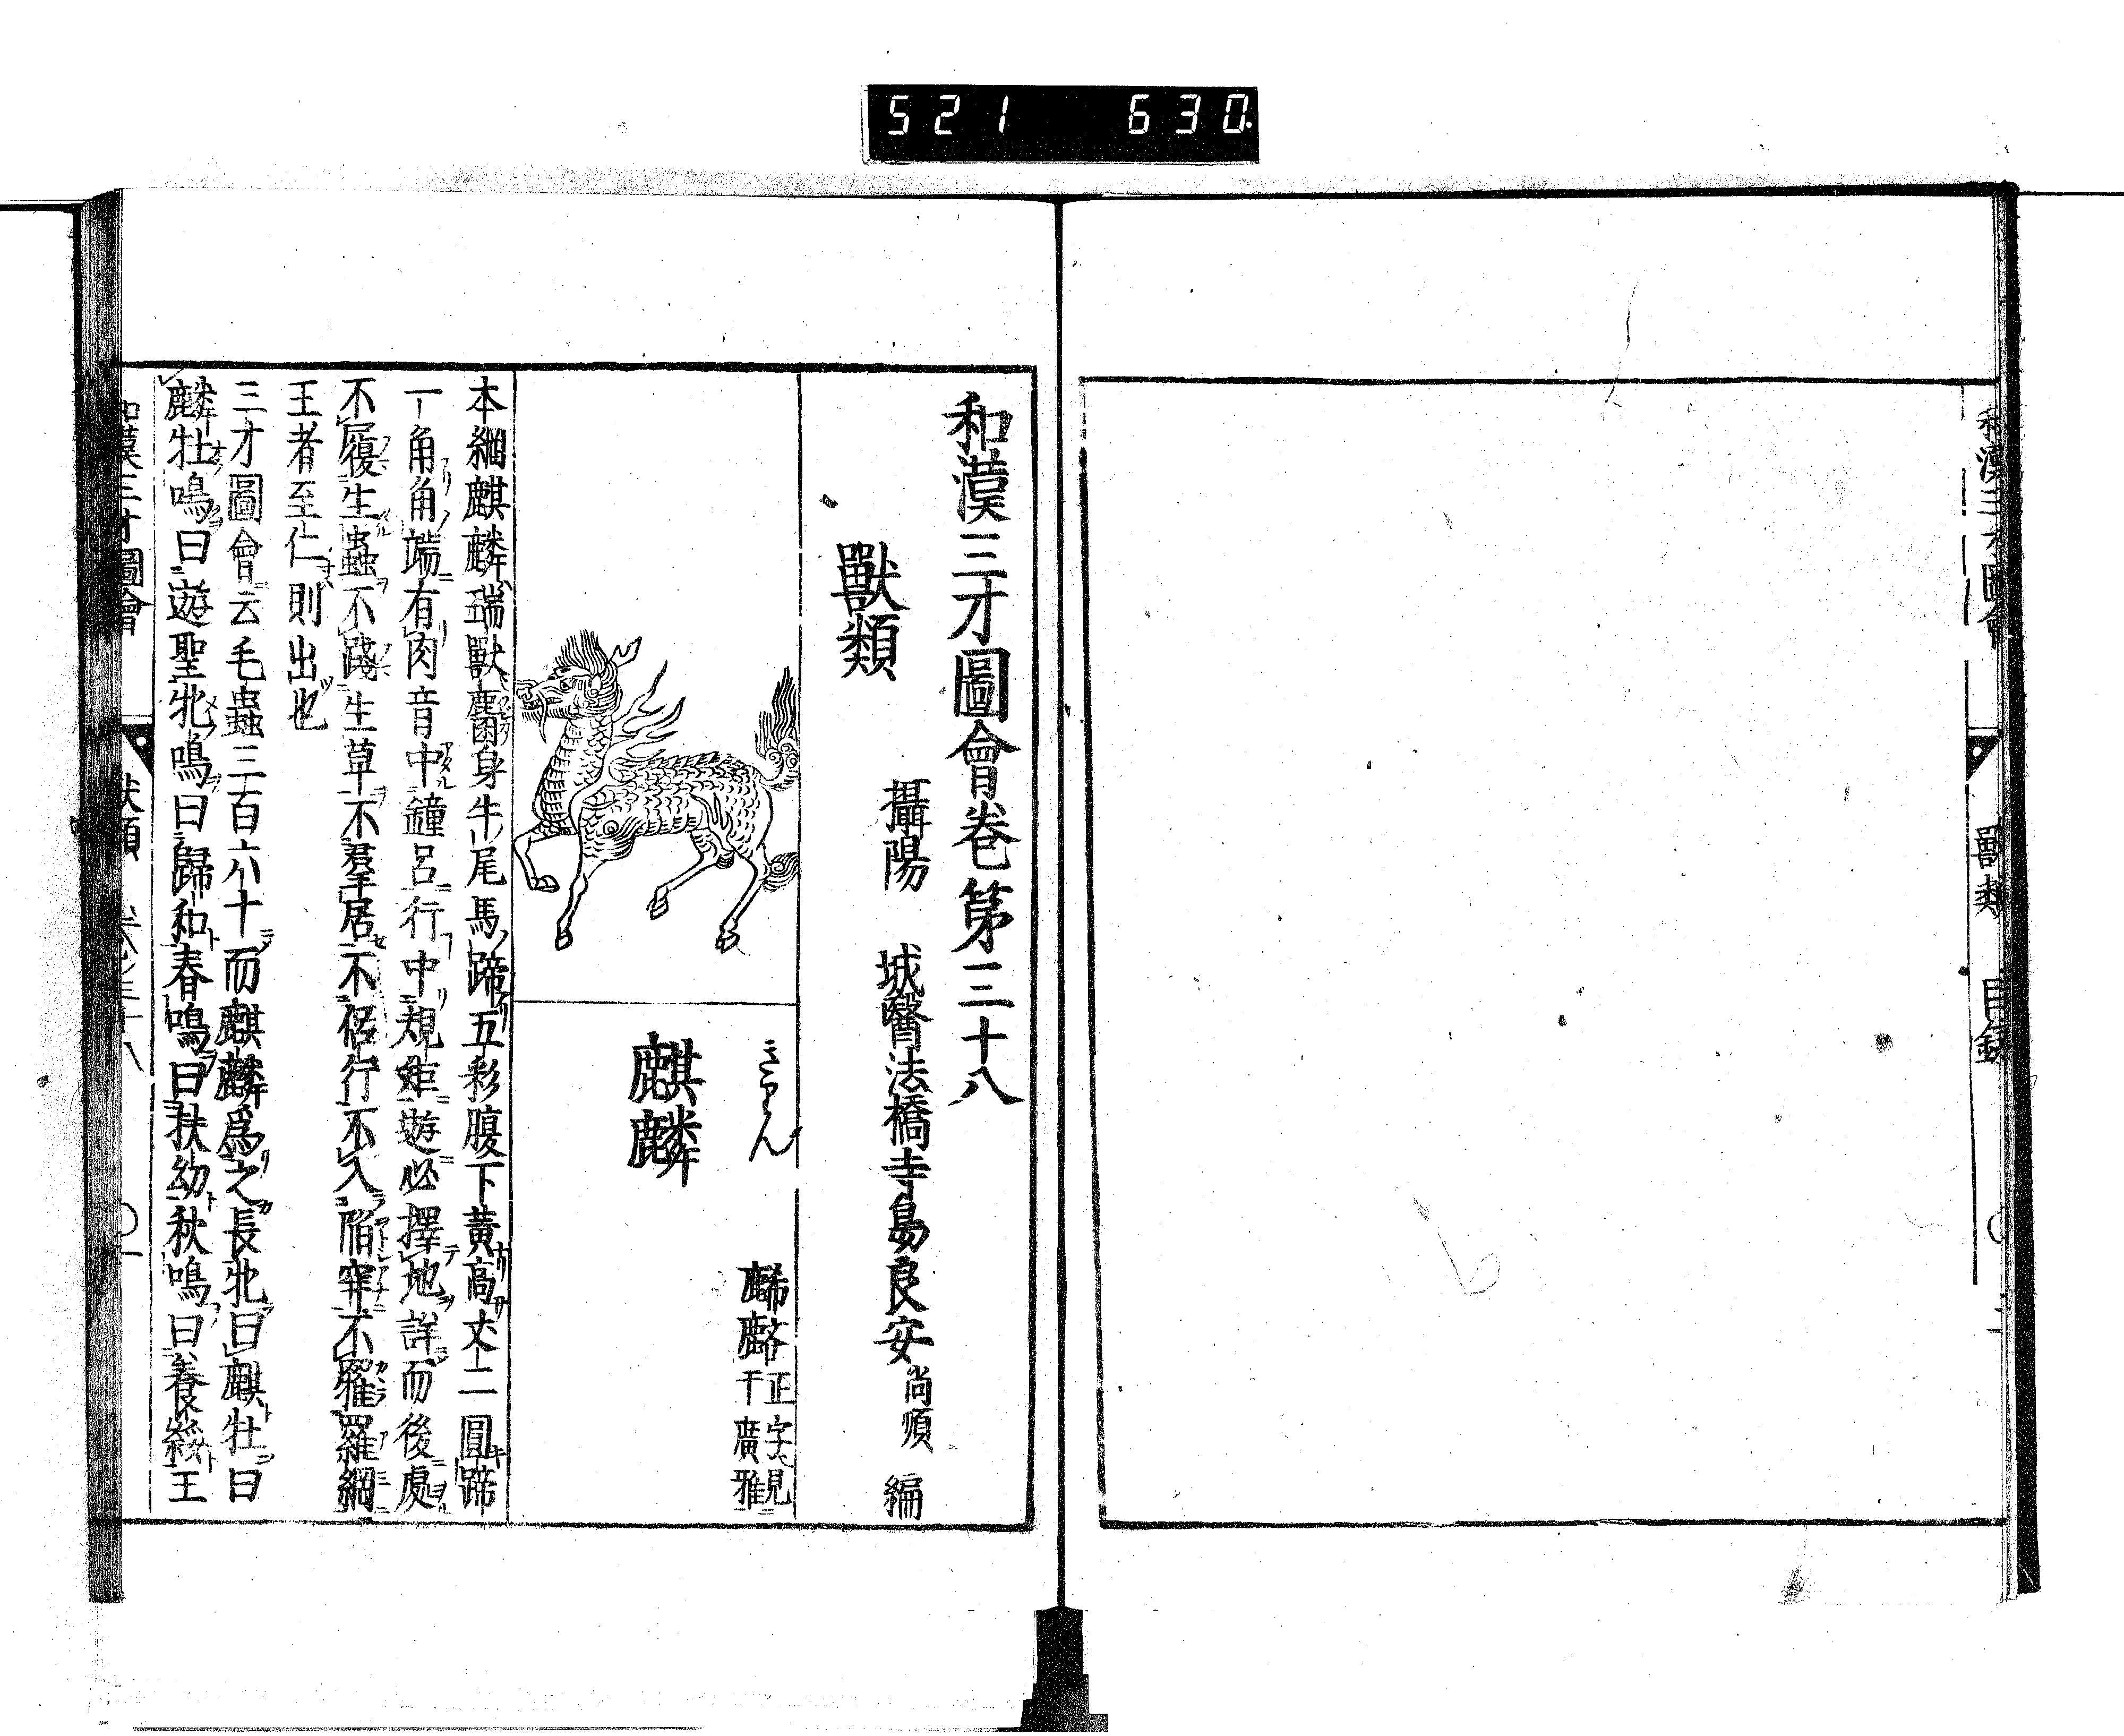 521 630.
和漢三才圖會
獸類 目錄
和漢三才圖會卷第三十八
攝陽 城醫法橋寺島良安尚順 編
獸類
きりん
麒麟
麟麟正字也見
于廣雅
本綱麒麟瑞獸麕身牛尾馬蹄五彩腹下黃高丈二圓蹄
一角角端有肉音中鐘呂行中規矩遊必擇地詳而後處
不履生蟲不踐生草不羣居不侶行不入陷穽不罹羅網
王者至仁則出也
三才圖會云毛蟲三百六十而麒麟爲之長牝曰麒牡曰
麟牡鳴曰遊聖牝鳴曰歸和春鳴曰扶幼秋鳴曰養綏王
和漢三才圖會 獸類 卷之三十八 〇一